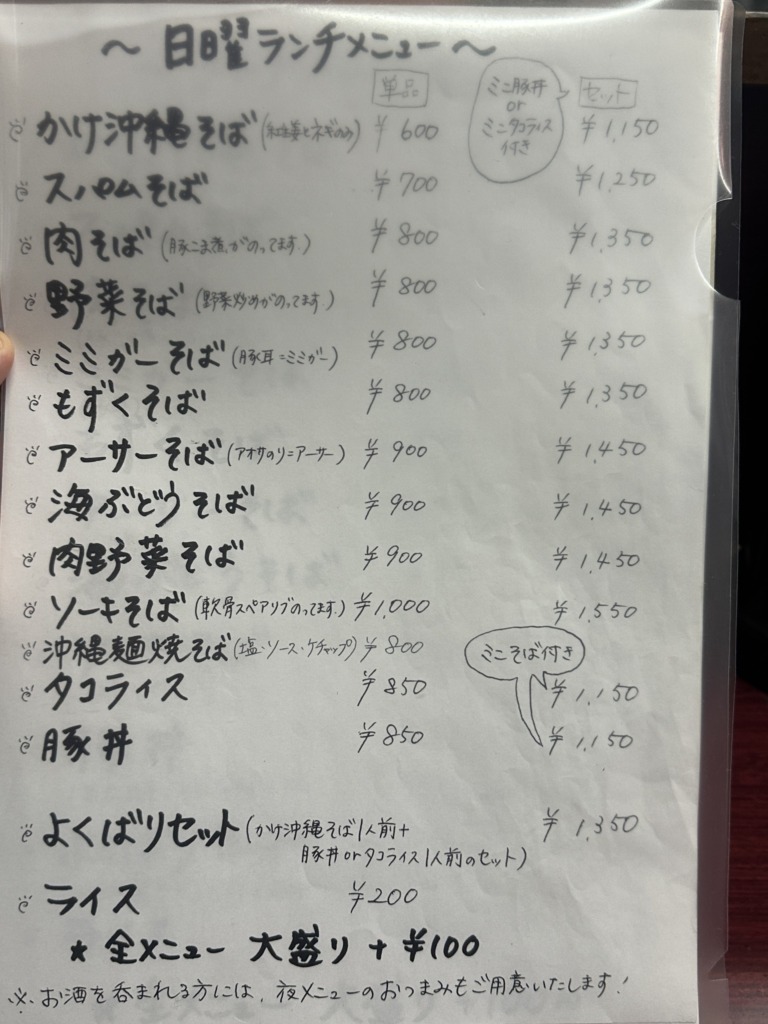 ～ 日曜ランチメニュー ～
単品 ミニ豚丼 or ミニタコライス 付き セット
かけ沖縄そば (紅生姜とネギのみ) ¥600 ¥1,150
スパムそば ¥700 ¥1,250
肉そば (豚こま煮がのってます。) ¥800 ¥1,350
野菜そば (野菜炒めがのってます。) ¥800 ¥1,350
ミミガーそば (豚耳=ミミガー) ¥800 ¥1,350
もずくそば ¥800 ¥1,350
アーサーそば (アオサのり=アーサー) ¥900 ¥1,450
海ぶどうそば ¥900 ¥1,450
肉野菜そば ¥900 ¥1,450
ソーキそば (軟骨スペアリブのってます。) ¥1,000 ¥1,550
沖縄麺焼そば (塩・ソース・ケチャップ) ¥800
ミニそば付き
タコライス ¥850 ¥1,150
豚丼 ¥850 ¥1,150
よくばりセット (かけ沖縄そば1人前+ ¥1,350
豚丼orタコライス1人前のセット)
ライス ¥200
★ 全メニュー 大盛り + ¥100
※ お酒を呑まれる方には、夜メニューのおつまみもご用意いたします!